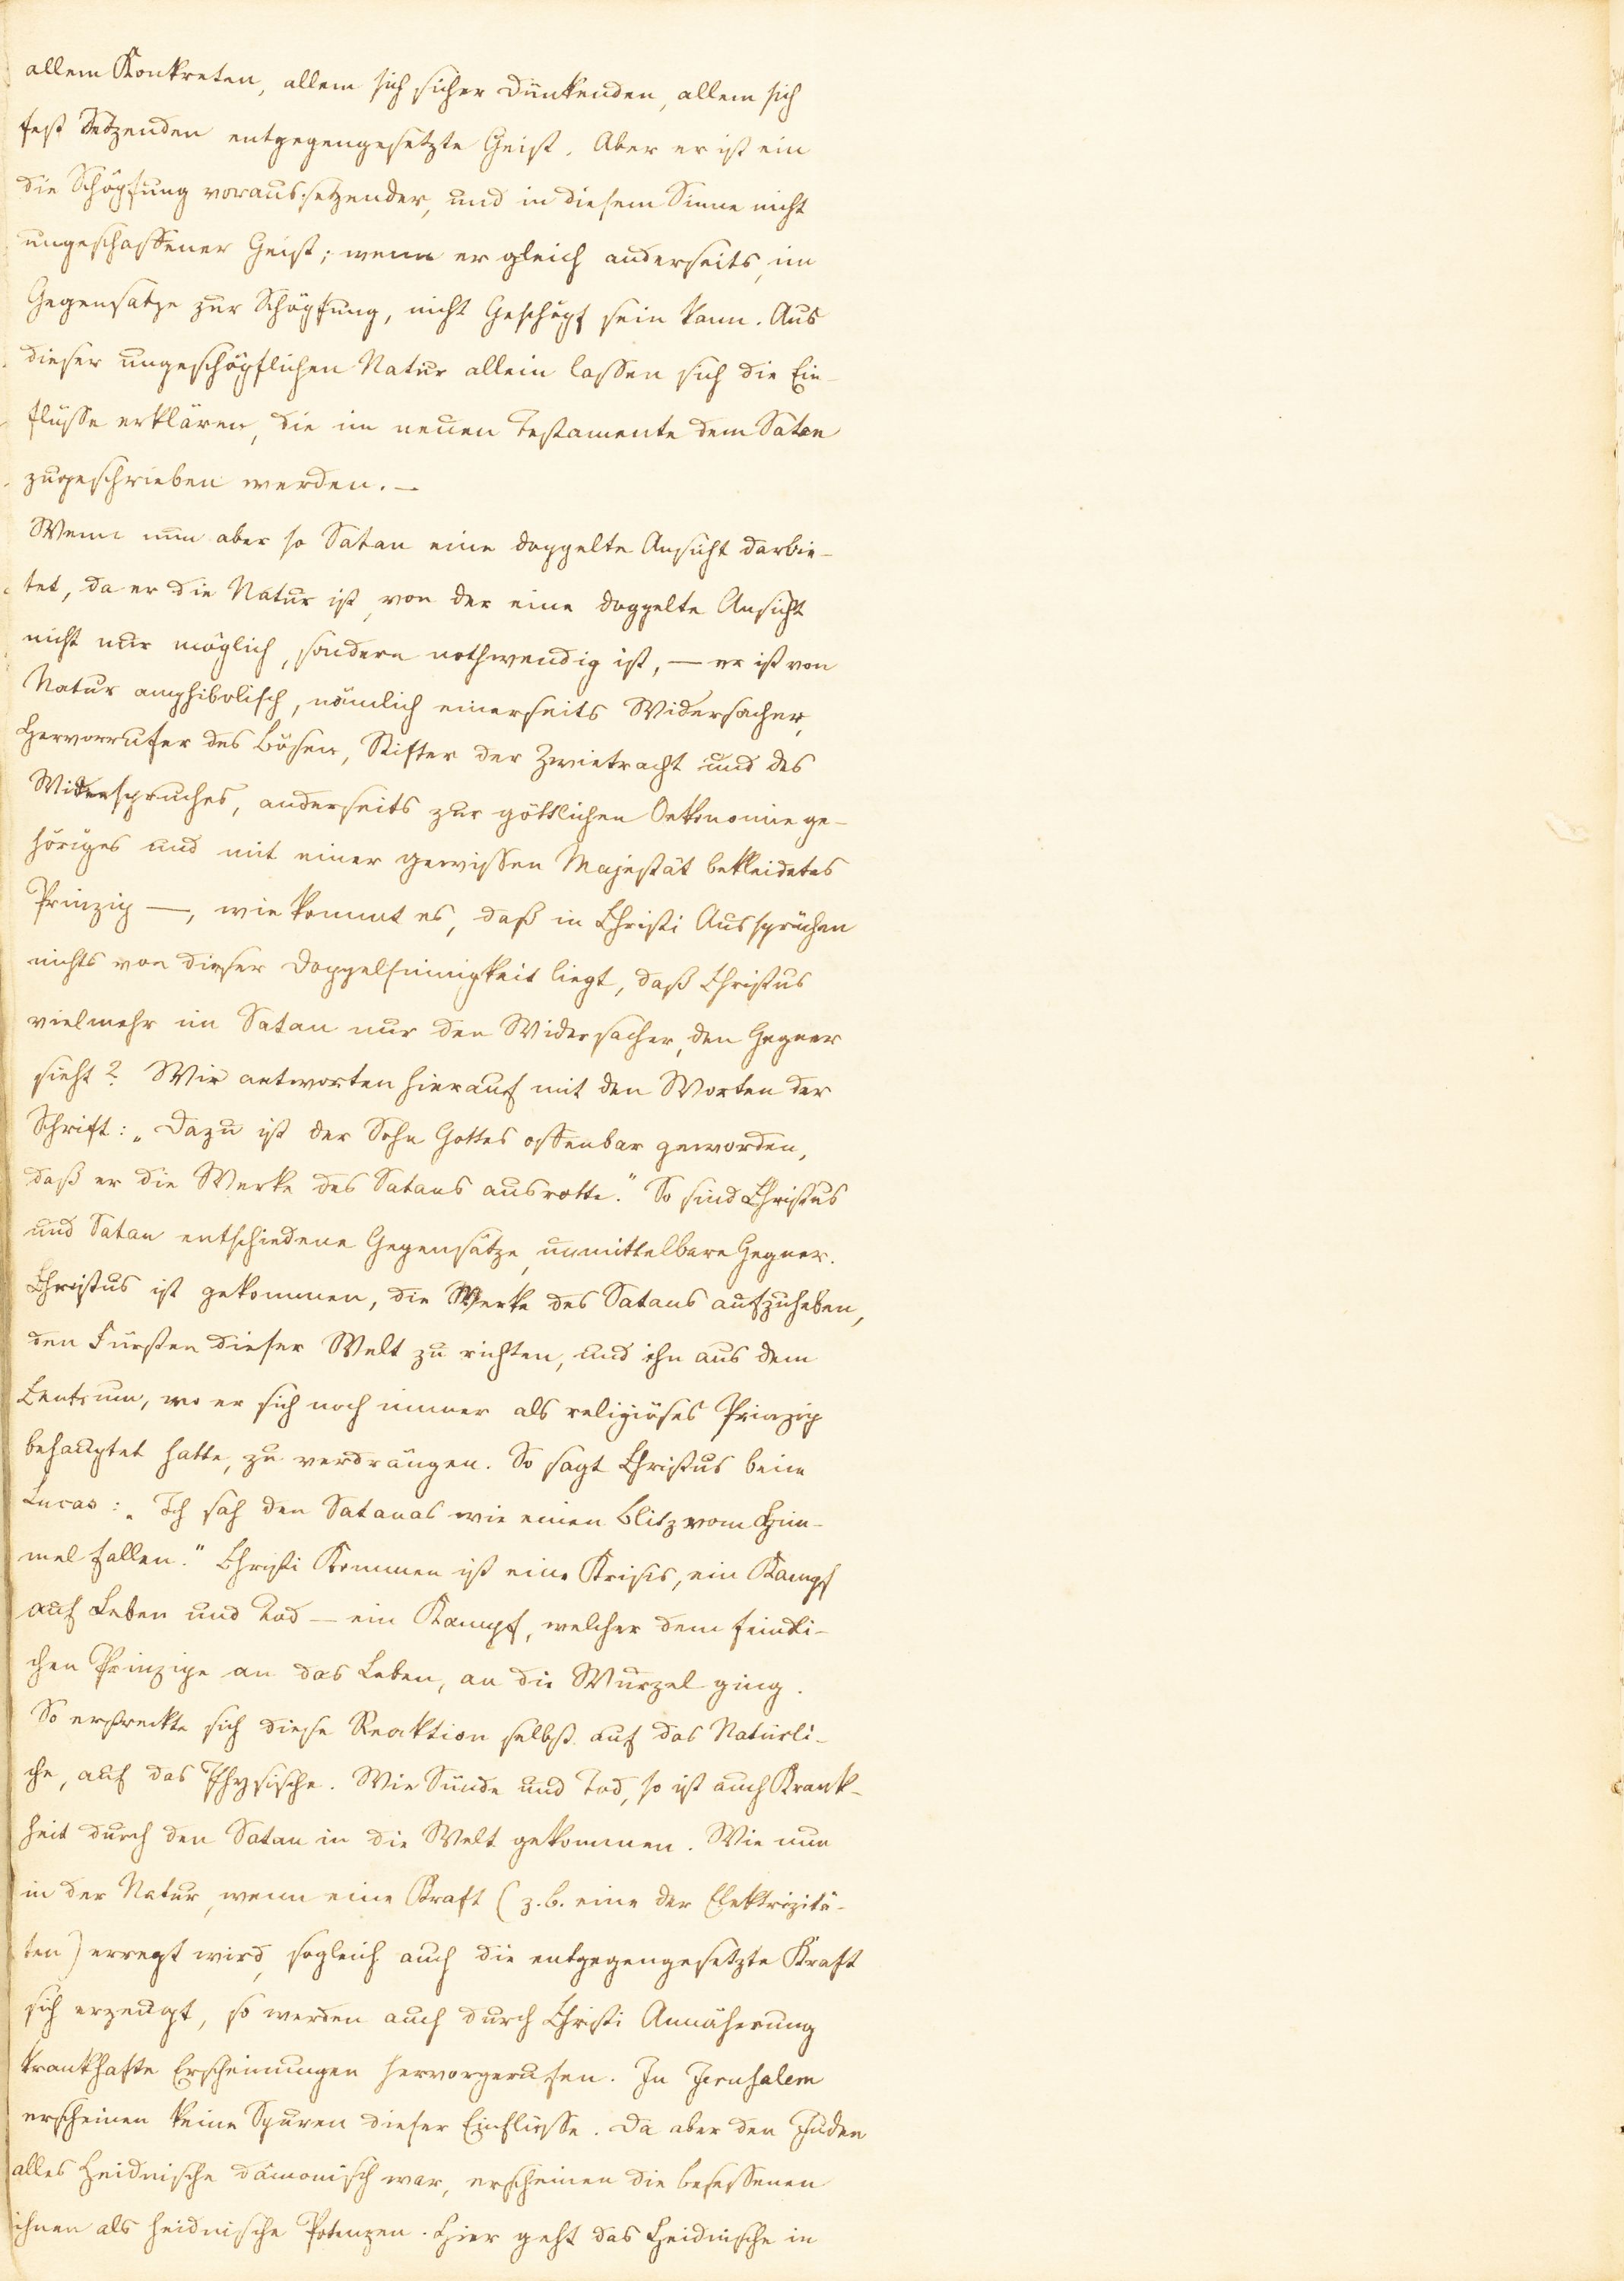 allem Konkreten, allem sich sicher Dünkenden, allem sich
fest Setzenden entgegengesetzte Geist. Aber er ist ein
die Schöpfung voraussetzender, und in diesem Sinne nicht
ungeschaffener Geist; wenn er gleich anderseits, im
Gegensatze zur Schöpfung, nicht Geschöpf sein kann. Aus
dieser ungeschöpflichen Natur allein lassen sich die Ein-
flüsse erklären, die im neuen Testamente dem Satan
zugeschrieben werden. —
Wenn nun aber so Satan eine doppelte Ansicht darbie-
tet, da er die Natur ist, von der eine doppelte Ansicht
nicht nur möglich, sondern nothwendig ist, — er ist von
Natur amphibolisch, nämlich einerseits Widersacher,
Hervorrufer des Bösen, Stifter der Zwietracht und des
Widerspruches, anderseits zur göttlichen Oekonomie ge-
höriges und mit einer gewissen Majestät bekleidetes
Prinzip —, wie kommt es, daß in Christi Aussprüchen
nichts von dieser Doppelsinnigkeit liegt, daß Christus
vielmehr im Satan nur den Widersacher, den Gegner
sieht? Wir antworten hierauf mit den Worten der
Schrift: „Dazu ist der Sohn Gottes offenbar geworden,
daß er die Werke des Satans ausrotte." So sind Christus
und Satan entschiedene Gegensätze, unmittelbare Gegner.
Christus ist gekommen, die Werke des Satans aufzuheben,
den Fürsten dieser Welt zu richten, und ihn aus dem
Centrum, wo er sich noch immer als religiöses Prinzip
behauptet hatte, zu verdrängen. So sagt Christus beim
Lucas: „Ich sah den Satanas wie einen Blitz vom Him-
mel fallen." Christi Kommen ist eine Krisis, ein Kampf
auf Leben und Tod — ein Kampf, welcher dem feindli-
chen Prinzipe an das Leben, an die Wurzel ging.
So erstreckte sich diese Reaktion selbst auf das Natürli-
che, auf das Physische. Wie Sünde und Tod, so ist auch Krank-
heit durch den Satan in die Welt gekommen. Wie nun
in der Natur, wenn eine Kraft (z.b. eine der Elektrizitä-
ten) erregt wird, sogleich auch die entgegengesetzte Kraft
sich erzeugt, so werden auch durch Christi Annäherung
krankhafte Erscheinungen hervorgerufen. In Jerusalem
erscheinen keine Spuren dieser Einflüsse. Da aber den Juden
alles Heidnische dämonisch war, erscheinen die besessenen
ihnen als heidnische Potenzen. Hier geht das Heidnische in